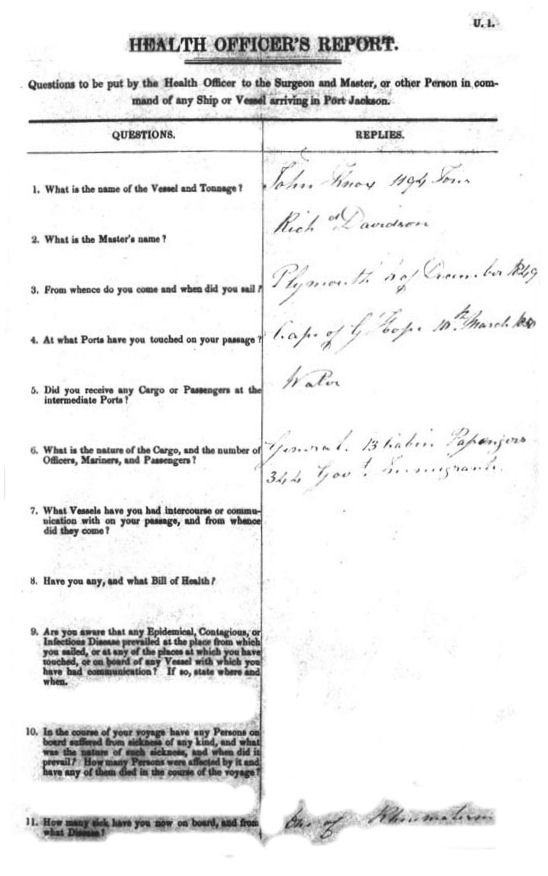 U. 1.
HEALTH OFFICER'S REPORT.
Questions to be put by the Health Officer to the Surgeon and Master, or other Person in com-
mand of any Ship or Vessel arriving in Port Jackson.
QUESTIONS.
REPLIES.
1. What is the name of the Vessel and Tonnage?
John Knox 1194 Tons
2. What is the Master's name?
Richd Davidson
3. From whence do you come and when did you sail?
Plymouth of December 1849
4. At what Ports have you touched on your passage?
Cape of G Hope 10th March 1850
5. Did you receive any Cargo or Passengers at the
intermediate Ports?
Water
6. What is the nature of the Cargo, and the number of
Officers, Mariners, and Passengers?
General. 13 Cabin Passengers
344 Govt. Immigrants.
7. What Vessels have you had intercourse or commu-
nication with on your passage, and from whence
did they come?
8. Have you any, and what Bill of Health?
9. Are you aware that any Epidemical, Contagious, or
Infectious Disease prevailed at the place from which
you sailed, or at any of the places at which you have
touched, or on board of any Vessel with which you
have had communication? If so, state where and
when.
10. In the course of your voyage have any Persons on
board suffered from sickness of any kind, and what
was the nature of such sickness, and when did it
prevail? How many Persons were affected by it and
have any of them died in the course of the voyage?
11. How many sick have you now on board, and from
what Disease?
One of Rheumatism